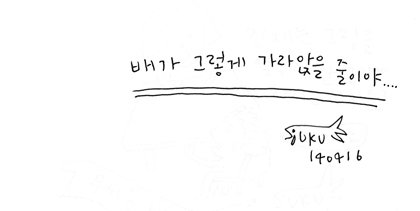 배가 그렇게 가라앉을 줄이야....
jUKU
140416